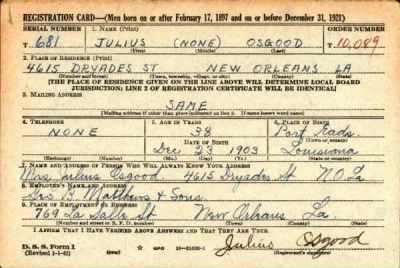 REGISTRATION CARD—(Men born on or after February 17, 1897 and on or before December 31, 1921)
SERIAL NUMBER 1. NAME (Print) ORDER NUMBER
T 681 JULIUS (NONE) OSGOOD T10,089
(First) (Middle) (Last)
2. PLACE OF RESIDENCE (Print)
4615 DRYADES ST NEW ORLEANS LA
(Number and street) (Town, township, village, or city) (County) (State)
[THE PLACE OF RESIDENCE GIVEN ON THE LINE ABOVE WILL DETERMINE LOCAL BOARD
JURISDICTION; LINE 2 OF REGISTRATION CERTIFICATE WILL BE IDENTICAL]
3. MAILING ADDRESS
SAME
[Mailing address if other than place indicated on line 2. If same insert word same]
4. TELEPHONE 5. AGE IN YEARS 6. PLACE OF BIRTH
NONE 38 Port Eads
DATE OF BIRTH (Town or county)
Dec 23 1903 Louisiana
(Exchange) (Number) (Mo.) (Day) (Yr.) (State or country)
7. NAME AND ADDRESS OF PERSON WHO WILL ALWAYS KNOW YOUR ADDRESS
Mrs Julius Osgood 4615 Dryades St N.O. La
8. EMPLOYER'S NAME AND ADDRESS
Geo B. Matthews & Sons.
9. PLACE OF EMPLOYMENT OR BUSINESS
769 La Salle St New Orleans La.
(Number and street or R. F. D. number) (Town) (County) (State)
I AFFIRM THAT I HAVE VERIFIED ABOVE ANSWERS AND THAT THEY ARE TRUE.
D. S. S. Form 1
(Revised 1-1-42) GPO Julius Osgood
(Registrant's signature)